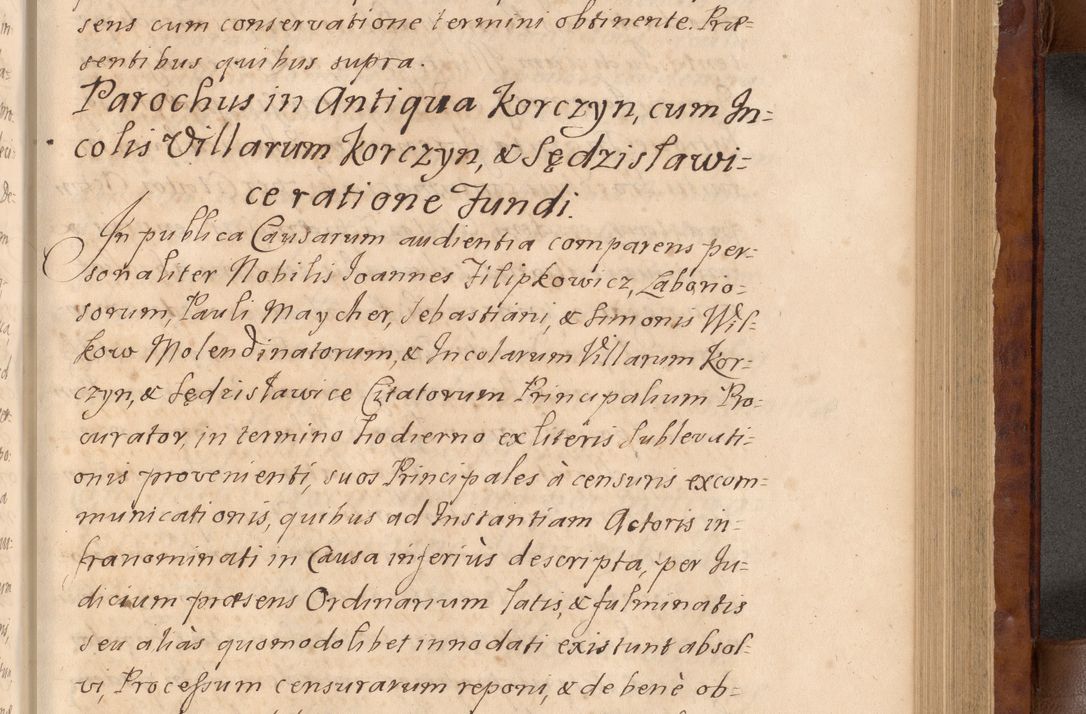 sens cum conservatione termini obtinente. Præ=
sentibus quibus supra.
Parochus in Antiqua Korczyn, cum In=
colis Villarum Korczyn, & Sędzisławi=
ce ratione Fundi.
In publica Causarum audientia comparens per=
sonaliter Nobilis Joannes Filipkowicz, Laborio=
sorum, Pauli Maycher, Sebastiani, & Simonis Wil=
kow Molendinatorum, & Incolarum Villarum Kor=
czyn, & Sędzisławice Citatorum Principalium Pro=
curator, in termino hodierno ex literis sublevati=
onis provenienti, suos Principales à censuris excom=
municationis, quibus ad Instantiam Actoris in=
franominati in Causa inferiùs descripta, per Iu=
dicium præsens Ordinarium latis, & fulminatis
seu aliàs quomodolibet innodati existunt absol=
vi, Processum censurarum reponi, & de benè ob=